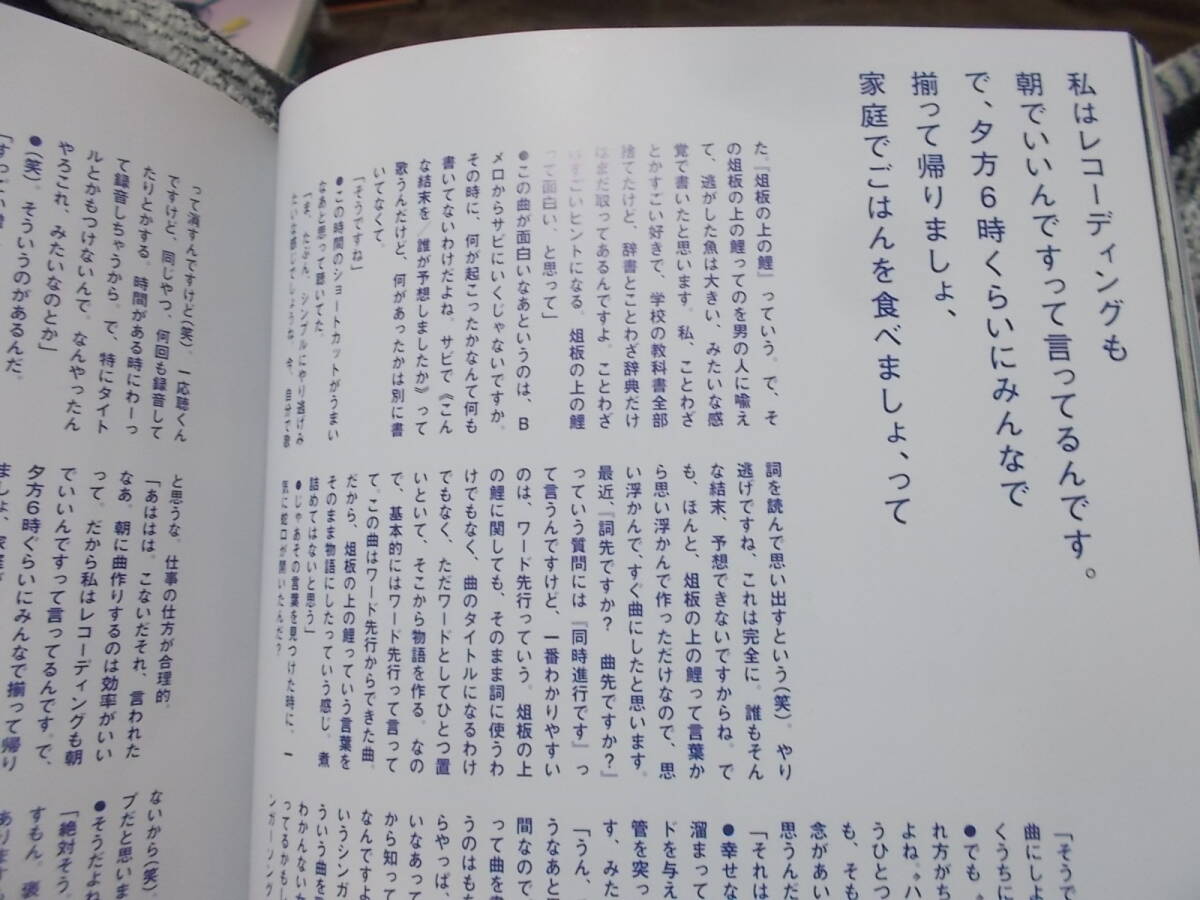 私はレコーディングも
朝でいいんですって言ってるんです。
で、夕方6時くらいにみんなで
揃って帰りましょ、
家庭でごはんを食べましょ、って
た。『俎板の上の鯉』っていう。で、そ
の俎板の上の鯉ってのを男の人に喩え
て、逃がした魚は大きい、みたいな感
覚で書いたと思います。私、ことわざ
とかすごい好きで、学校の教科書全部
捨てたけど、辞書とことわざ辞典だけ
はまだ取ってあるんですよ。ことわざ
はすごいヒントになる。俎板の上の鯉
って面白い、と思って」
●この曲が面白いなあというのは、B
メロからサビにいくじゃないですか。
その時に、何が起こったかなんて何も
書いてないわけだよね。サビで《こん
な結末を／誰が予想しましたか》って
歌うんだけど、何があったかは別に書
いてなくて。
「そうですね」
●この時間のショートカットがうまい
なあと思って聴いてた。
「ま、たぶん、シンプルにやり逃げみ
たいな感じでしょうね。今、自分で歌
詞を読んで思い出すという(笑)。やり
逃げですね、これは完全に。誰もそん
な結末、予想できないですからね。で
も、ほんと、俎板の上の鯉って言葉か
ら思い浮かんで作っただけなので、思
い浮かんで、すぐ曲にしたと思います。
最近、『詞先ですか？　曲先ですか？』
っていう質問には『同時進行です』っ
て言うんですけど、一番わかりやすい
のは、ワード先行っていう。俎板の上
の鯉に関しても、そのまま詞に使うわ
けでもなく、曲のタイトルになるわけ
でもなく、ただワードとしてひとつ置
いといて、そこから物語を作る。なの
で、基本的にはワード先行って言って
て。この曲はワード先行からできた曲。
だから、俎板の上の鯉っていう言葉を
そのまま物語にしたっていう感じ。煮
詰めてはないと思う」
●じゃあその言葉を見つけた時に、一
気に蛇口が開いたんだ？
「そうで
曲にしよ
くうちに
●でも
れ方がち
よね。〝ハ
うひとつ
も、そも
念があい
思うんだ
「それは
●幸せな
溜まって
ドを与え
管を突っ
す、みた
「うん、
うなあと
間なので
って曲を
うのはも
らやっぱ
いなあって
から知って
なんですよ
いうシンガ
ういう曲を
わかんない
ってるかも
ンガーソング
って消すんですけど(笑)。一応聴くん
ですけど、同じやつ、何回も録音して
たりとかする。時間がある時にわーっ
て録音しちゃうから。で、特にタイト
ルとかもつけないんで。なんやったん
やろこれ、みたいなのとか」
●(笑)。そういうのがあるんだ。
と思うな。仕事の仕方が合理的。
「あははは。こないだそれ、言われた
なあ。朝に曲作りするのは効率がいい
って。だから私はレコーディングも朝
でいいんですって言ってるんです。で、
夕方6時ぐらいにみんなで揃って帰り
ないから(笑)
ブだと思いま
●そうだよね
「絶対そう。
すもん。褒